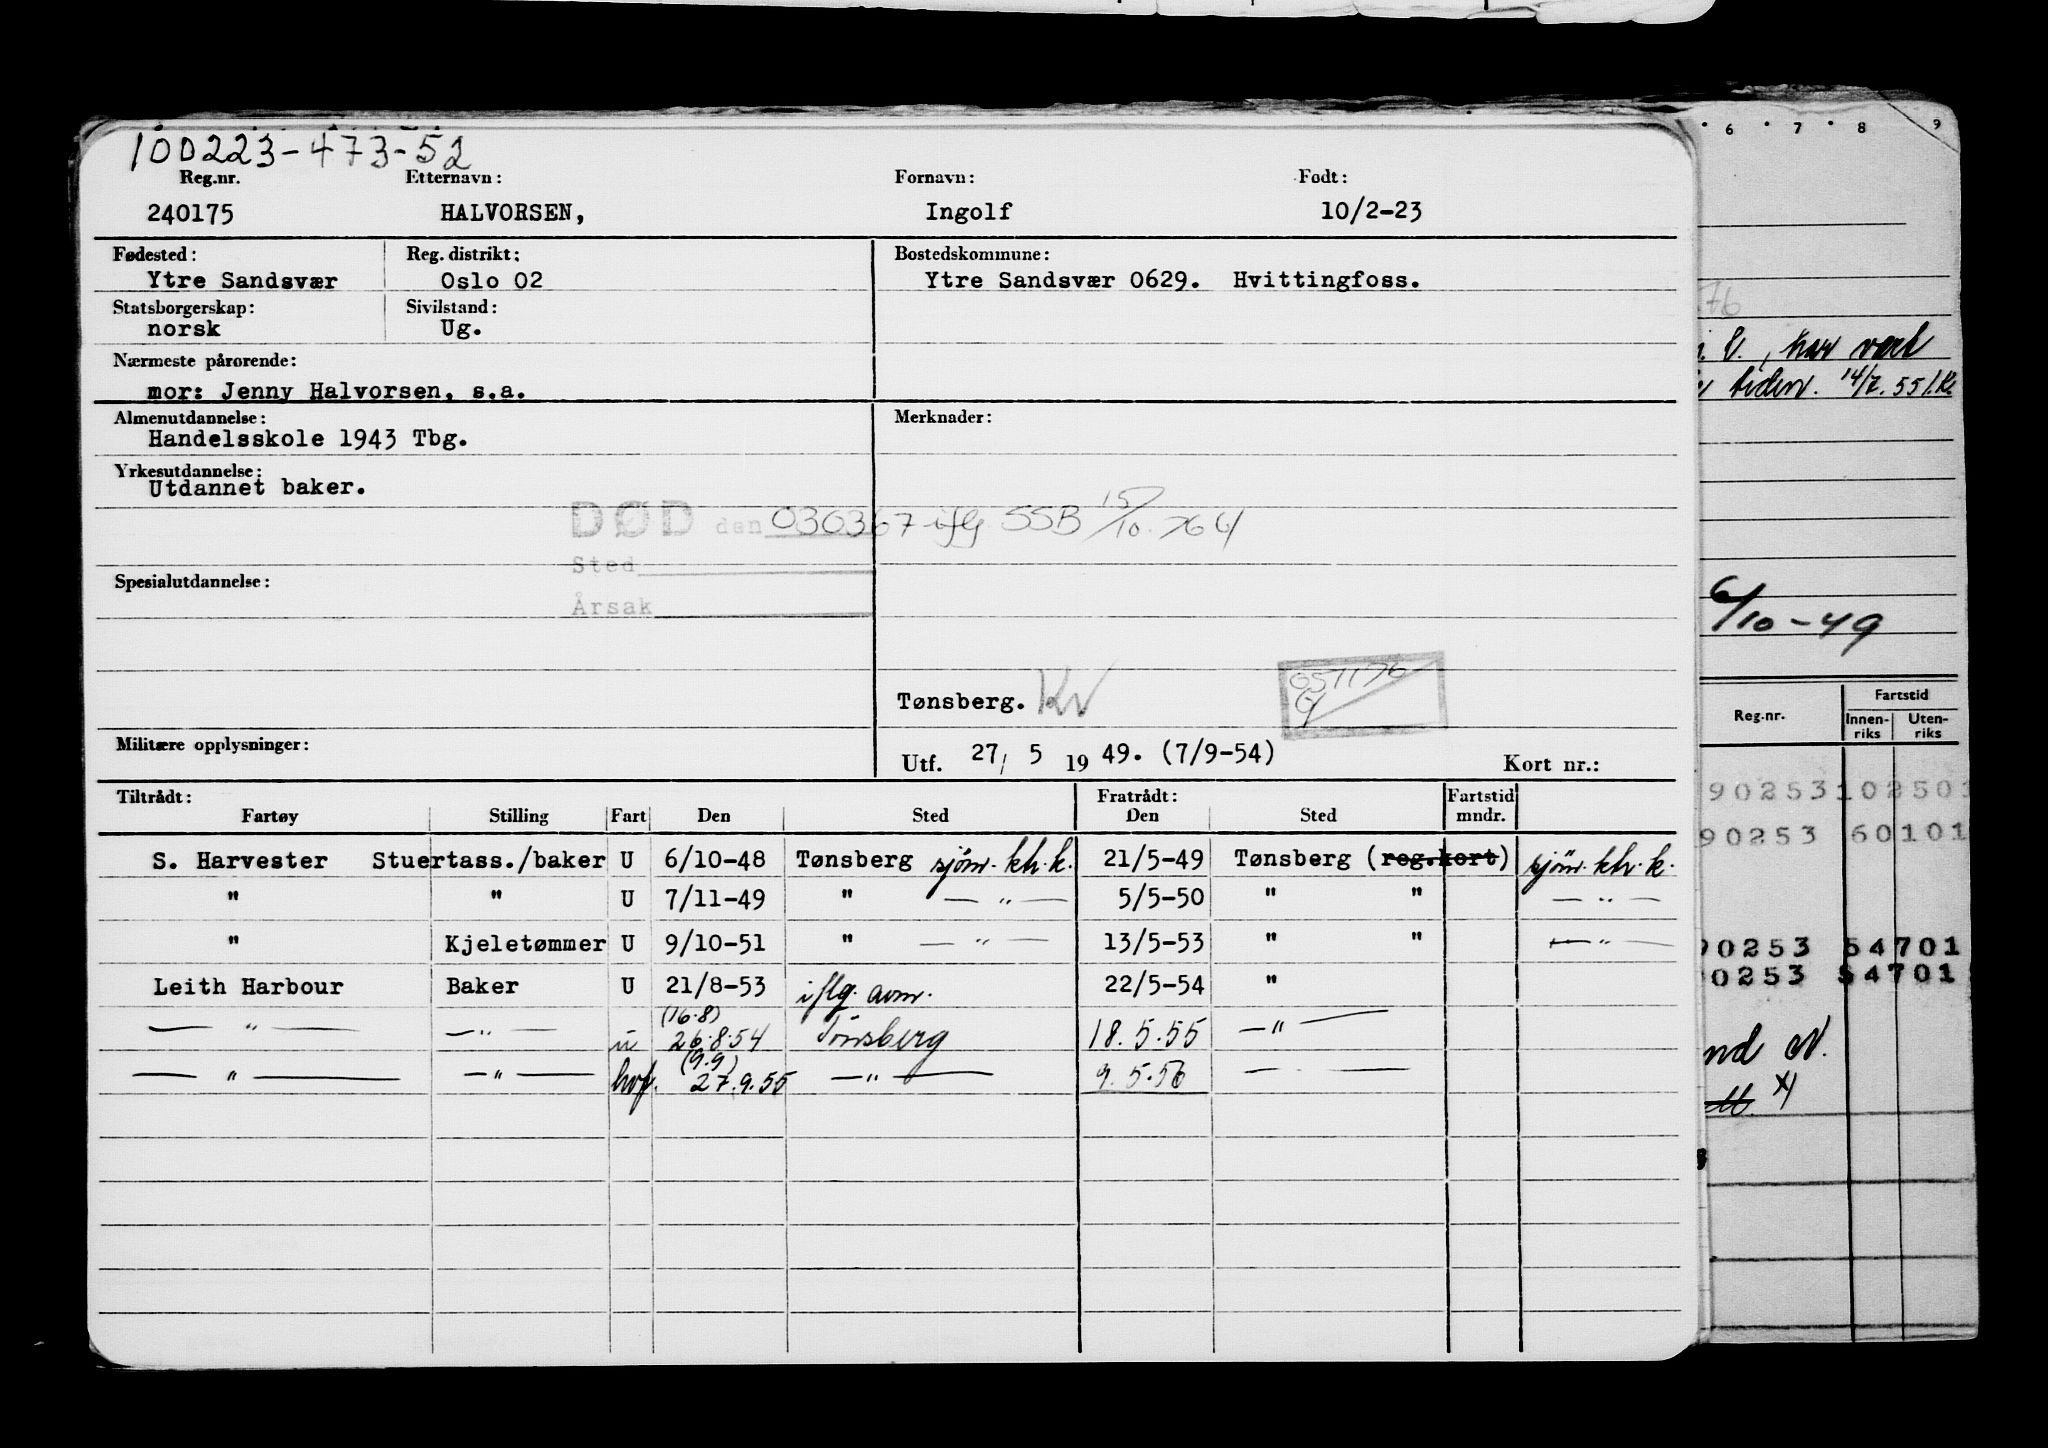 100223-473-52
Reg.nr. Etternavn: Fornavn: Født:
240175 HALVORSEN, Ingolf 10/2-23
Fødested: Reg. distrikt: Bostedskommune:
Ytre Sandsvær Oslo 02 Ytre Sandsvær 0629. Hvittingfoss.
Statsborgerskap: Sivilstand:
norsk Ug.
Nærmeste pårørende:
mor: Jenny Halvorsen, s.a.
Almenutdannelse: Merknader:
Handelsskole 1943 Tbg.
Yrkesutdannelse:
Utdannet baker.
DØD den 030367 iflg SSB 15/10.76
Sted
Spesialutdannelse:
Årsak
Tønsberg. KV
051176
Militære opplysninger:
Utf. 27/ 5 19 49. (7/9-54) Kort nr.:
Tiltrådt: Fratrådt: Fartstid
Fartøy Stilling Fart Den Sted Den Sted mndr.
S. Harvester Stuertass./baker U 6/10-48 Tønsberg sjöm. ktr. k. 21/5-49 Tønsberg (reg.kort) sjöm. ktr. k.
" " U 7/11-49 " — " — 5/5-50 " " — " —
" Kjeletømmer U 9/10-51 " — " — 13/5-53 " " — " —
Leith Harbour Baker U 21/8-53 iflg. avm. 22/5-54 "
(16.8)
— " — — " — u 26.8.54 Tönsberg 18.5.55 — " —
(9.9)
— " — — " — hvf. 27.9.55 — " — 9.5.56 — —
6 7 8 9
76
har vært
tiden. 14/7.55
6/10-49
Fartstid
Reg.nr. Innen- Uten-
riks riks
90253 102501
90253 60101
90253 54701
0253 54701
nd
x)